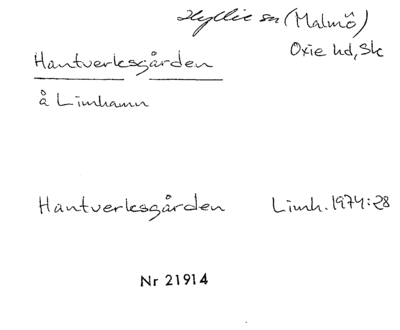 Hyllie sn (Malmö)
Oxie hd, Sk
Hantverksgården
å Limhamn
Hantverksgården Limh. 1974:28
Nr 21914